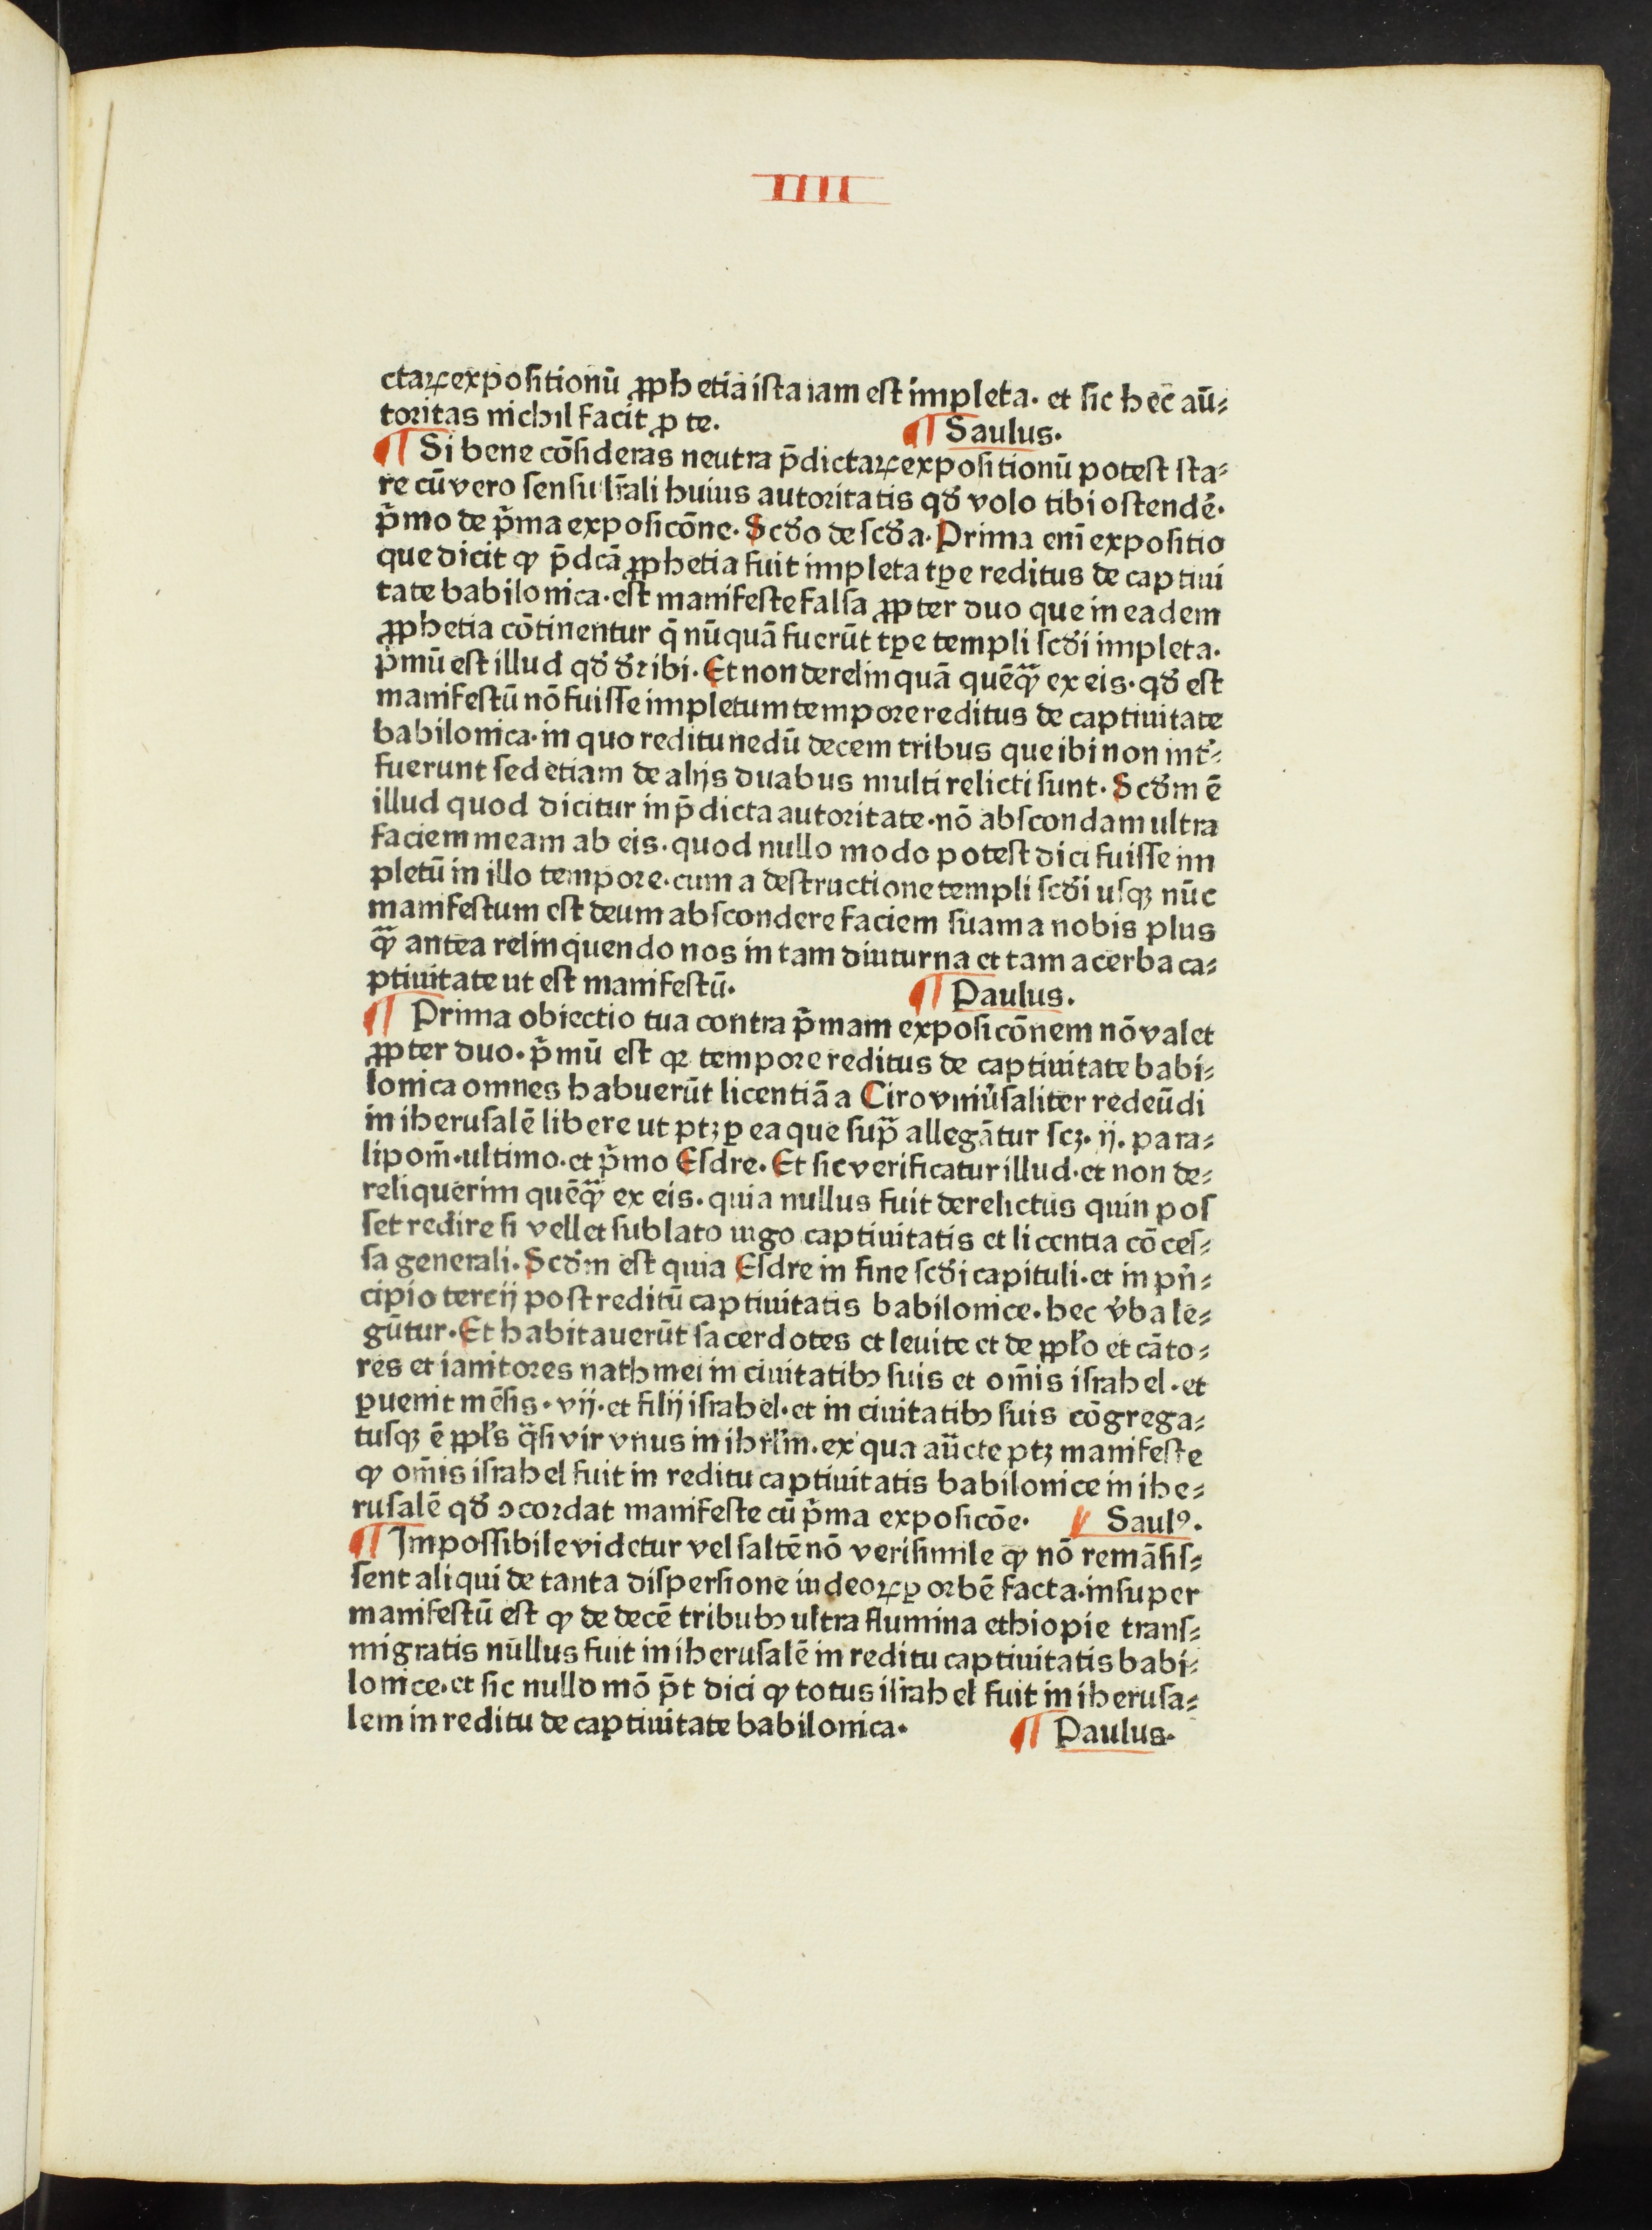 IIII
ctaꝝ expositionū ꝓphetia ista iam est impleta. et sic hec aū⸗
toritas nichil facit ꝓ te. ¶ Saulus.
¶ Si bene cōsideras neutra p̄dictaꝝ expositionū potest sta⸗
re cū vero sensu lr̄ali huius autoritatis qđ volo tibi ostendē.
p̄mo de p̄ma exposicōne. Scđo de scđa. Prima enī expositio
que dicit ꝙ p̄dcā ꝓphetia fuit impleta tꝑe reditus de captiui
tate babilonica. est manifeste falsa ꝓpter duo que in eadem
ꝓphetia cōtinentur q̄ nūquā fuerūt tꝑe templi scđi impleta.
p̄mū est illud qđ đr ibi. Et non derelinquā quēq̃ ex eis. qđ est
manifestū nō fuisse impletum tempore reditus de captiuitate
babilonica. in quo reditu nedū decem tribus que ibi non int̄⸗
fuerunt sed etiam de alijs duabus multi relicti sunt. Scđm ē
illud quod dicitur in p̄dicta autoritate. nō abscondam ultra
faciem meam ab eis. quod nullo modo potest dici fuisse im
pletū in illo tempore. cum a destructione templi scđi usqꝫ nūc
manifestum est deum abscondere faciem suam a nobis plus
q̃ antea relinquendo nos in tam diuturna et tam acerba ca⸗
ptiuitate ut est manifestū. ¶ Paulus.
¶ Prima obiectio tua contra p̄mam exposicōnem nō valet
ꝓpter duo. p̄mū est qꝛ tempore reditus de captiuitate babi⸗
lonica omnes habuerūt licentiā a Ciro vniūsaliter redeūdi
in iherusalē libere ut ptꝫ ꝑ ea que sup̃ allegātur scꝫ. ij. para⸗
lipom̄. ultimo. et p̄mo Esdre. Et sic verificatur illud. et non de⸗
reliquerim quēq̃ ex eis. quia nullus fuit derelictus quin pos
set redire si vellet sublato iugo captiuitatis et licentia cōces⸗
sa generali. Scđm est quia Esdre in fine scđi capituli. et in pn̄⸗
cipio tercij post reditū captiuitatis babilonice. hec v̄ba le⸗
gūtur. Et habitauerūt sacerdotes et leuite et de ppl̄o et cāto⸗
res et ianitores nathinei in ciuitatibꝫ suis et om̄is israhel. et
ꝑuenit mēsis. vij. et filij israhel. et in ciuitatibꝫ suis cōgrega⸗
tusqꝫ ē ppl̄s q̄si vir vnus in ihrl̄m. ex qua aūcte ptꝫ manifeste
ꝙ om̄is israhel fuit in reditu captiuitatis babilonice in ihe⸗
rusalē qđ ↄcordat manifeste cū p̄ma exposicōe. ¶ Saulꝰ.
¶ Impossibile videtur vel saltē nō verisimile ꝙ nō remāsis⸗
sent aliqui de tanta dispersione iudeoꝝ ꝑ orbē facta. insuper
manifestū est ꝙ de decē tribubꝫ ultra flumina ethiopie trans⸗
migratis nullus fuit in iherusalē in reditu captiuitatis babi⸗
lonice. et sic nullo mō p̄t dici ꝙ totus israhel fuit in iherusa⸗
lem in reditu de captiuitate babilonica. ¶ Paulus.